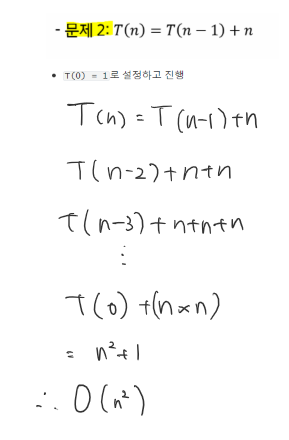 - 문제 2: T(n) = T(n − 1) + n
• T(0) = 1로 설정하고 진행
T(n) = T(n-1)+n
T(n-2)+n+n
T(n-3)+n+n+n
⋮
T(0)+(n×n)
= n²+1
∴ O(n²)